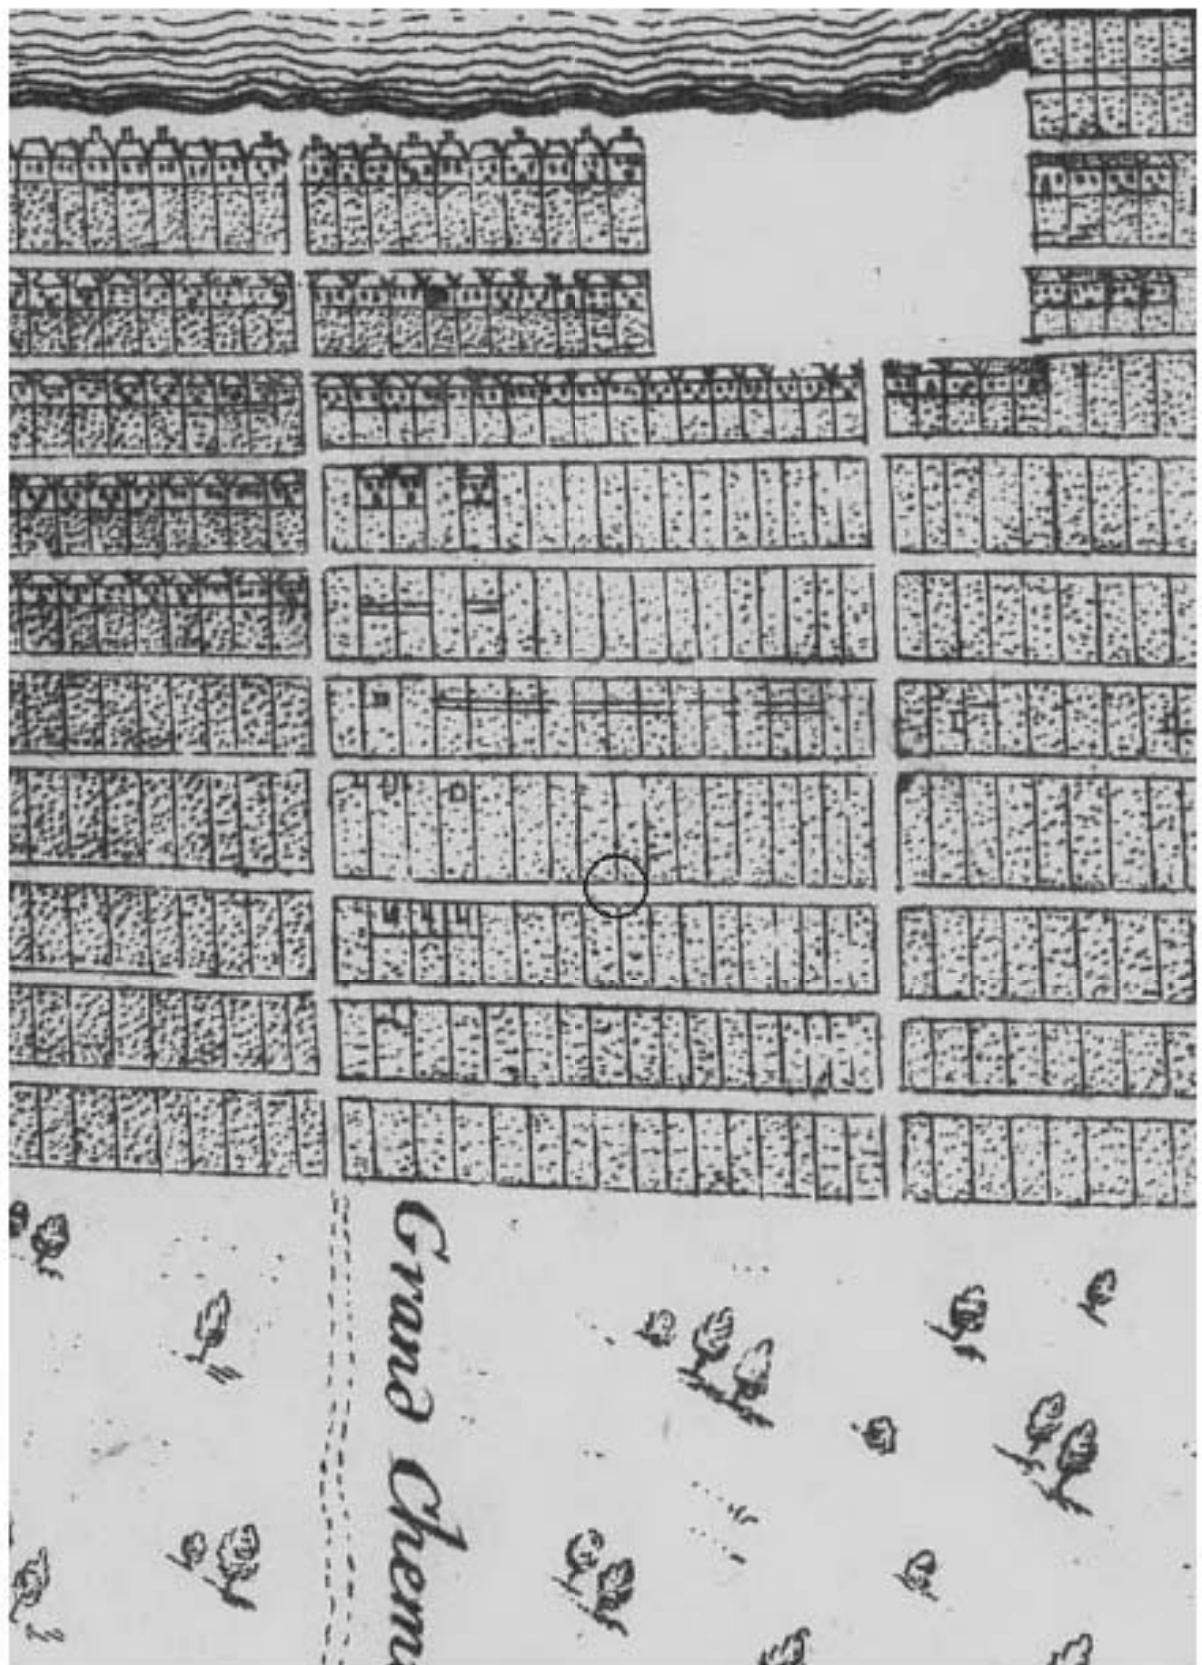 Grand Chem